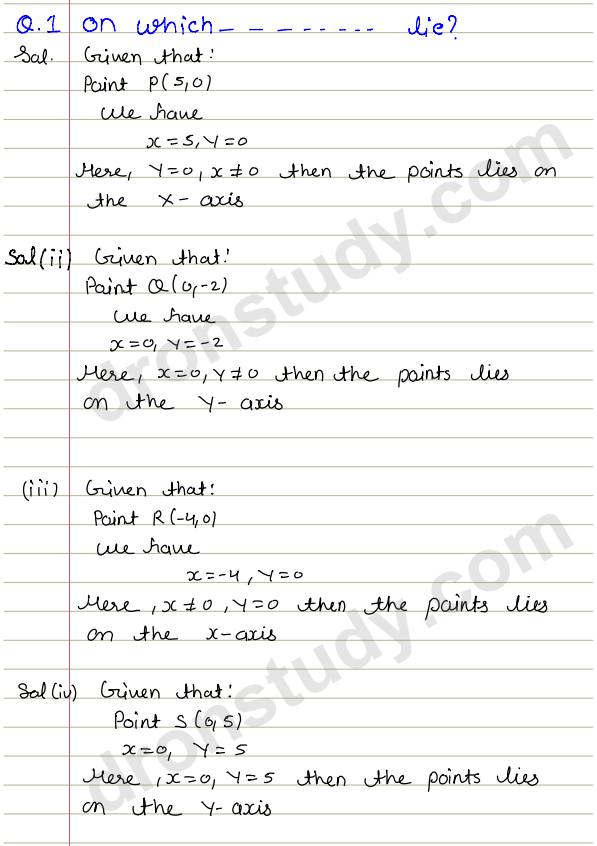 Q.1 On which - - - - - - - - - lie?
Sol. Given that:
Point P(5,0)
We have
x=5, Y=0
Here, Y=0, x≠0 then the points lies on
the X-axis
Sol(ii) Given that:
Point Q(0,-2)
We have
x=0, Y=-2
Here, x=0, Y≠0 then the points lies
on the Y-axis
(iii) Given that:
Point R(-4,0)
We have
x=-4, Y=0
Here, x≠0, Y=0 then the points lies
on the x-axis
Sol(iv) Given that:
Point S(0,5)
x=0, Y=5
Here, x=0, Y=5 then the points lies
on the Y-axis
dronstudy.com
dronstudy.com